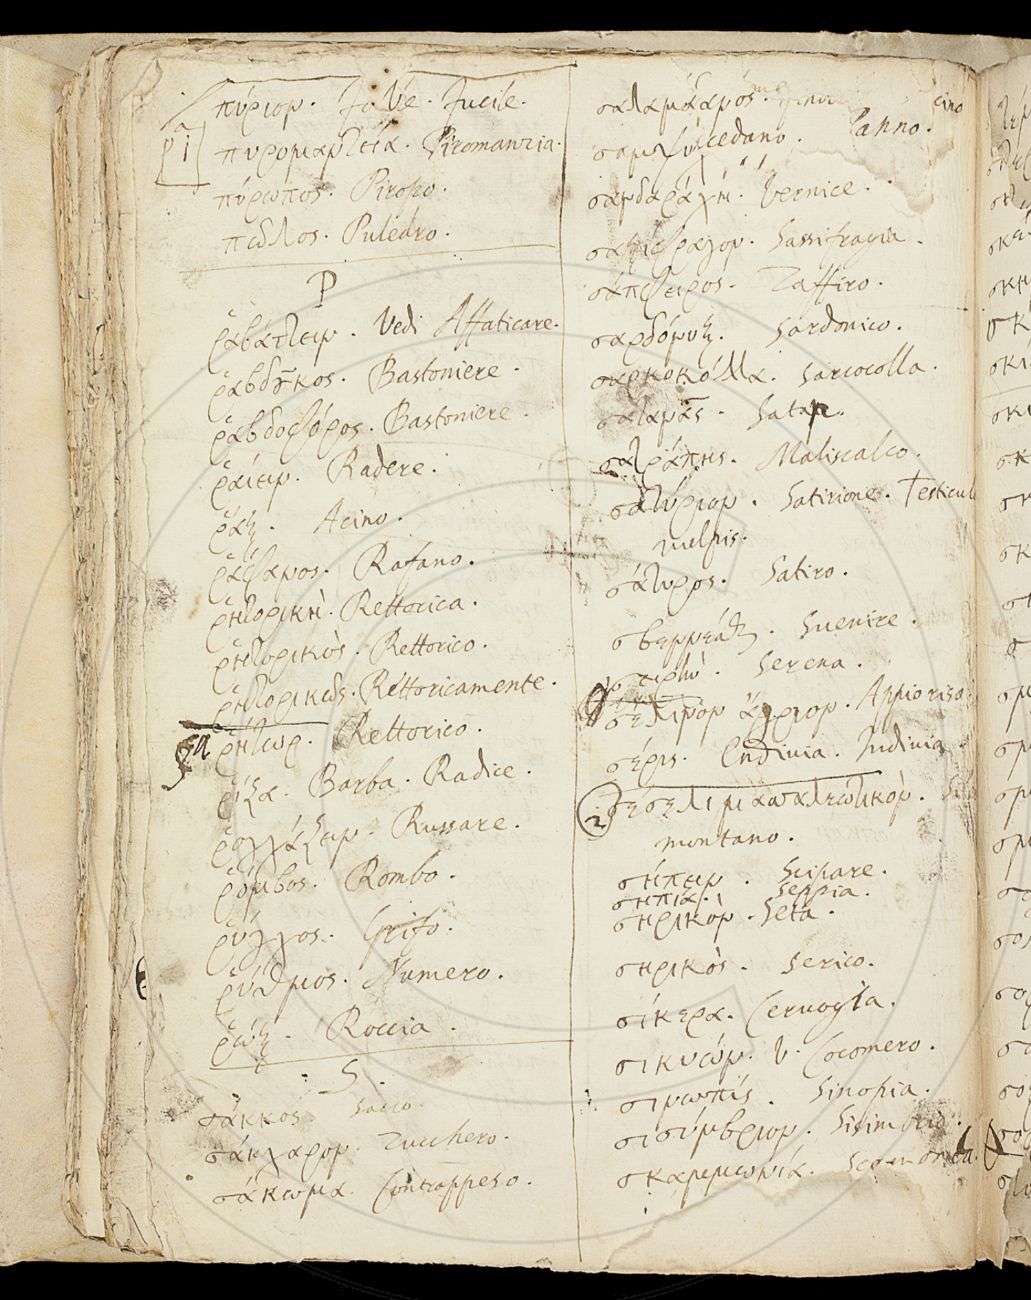 πύριον. Fucile.
πυρομαντεία. Piromantia.
πύρωπος. Piropo.
πῶλος. Puledro.
Ρ
ῥαβάττειν. Vedi Affaticare.
ῥαβδοῦχος. Bastoniere.
ῥαβδοφόρος. Bastoniere.
ῥαίειν. Radere.
ῥάξ. Acino.
ῥάφανος. Rafano.
ῥητορικὴ. Rettorica.
ῥητορικὸς. Rettorico.
ῥητορικῶς. Rettoricamente.
ῥήτωρ. Rettorico.
ῥίζα. Barba. Radice.
Russare.
ῥόμβος. Rombo.
Grifo.
ῥύθμος. Numero.
ῥώξ. Roccia.
S.
σάκκος Sacco.
σάκχαρον. Zucchero.
σάκωμα. Contrappeso.
σανδαράχη. Vernice.
σαξίφραγον. Sassifragia.
σάπφειρος. Zaffiro.
σαρδόνυξ. Sardonico.
σαρκοκόλλα. Sarcocolla.
σατανᾶς. Satan.
σατράπης. Maliscalco.
σατύριον. Satirione. Testicul
vulpis.
σάτυρος. Satiro.
Suenire.
σειρὴν. Serena.
σέλινον ἄγριον.
σέρις. Endivia. Indivia
2 σέσελι μασσαλεωτικὸν.
montano.
σήπειν.
σηπία. Seppia.
σηρικὸν. Seta.
σηρικὸς. Serico.
σίκερα. Cervogia.
σικυών. V. Cocomero.
σινωπίς. Sinopia.
σισύμβριον. Sisimbrio.
σκαμμωνία.